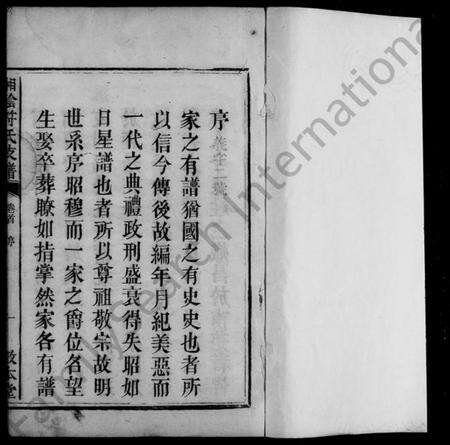 序
家之有譜猶國之有史史也者所
以信今傳後故編年月紀美惡而
一代之典禮政刑盛衰得失昭如
日星譜也者所以尊祖敬宗故明
世系序昭穆而一家之爵位名望
生娶卒葬瞭如指掌然家各有譜
氏支譜
卷首
一
FamilySearch International